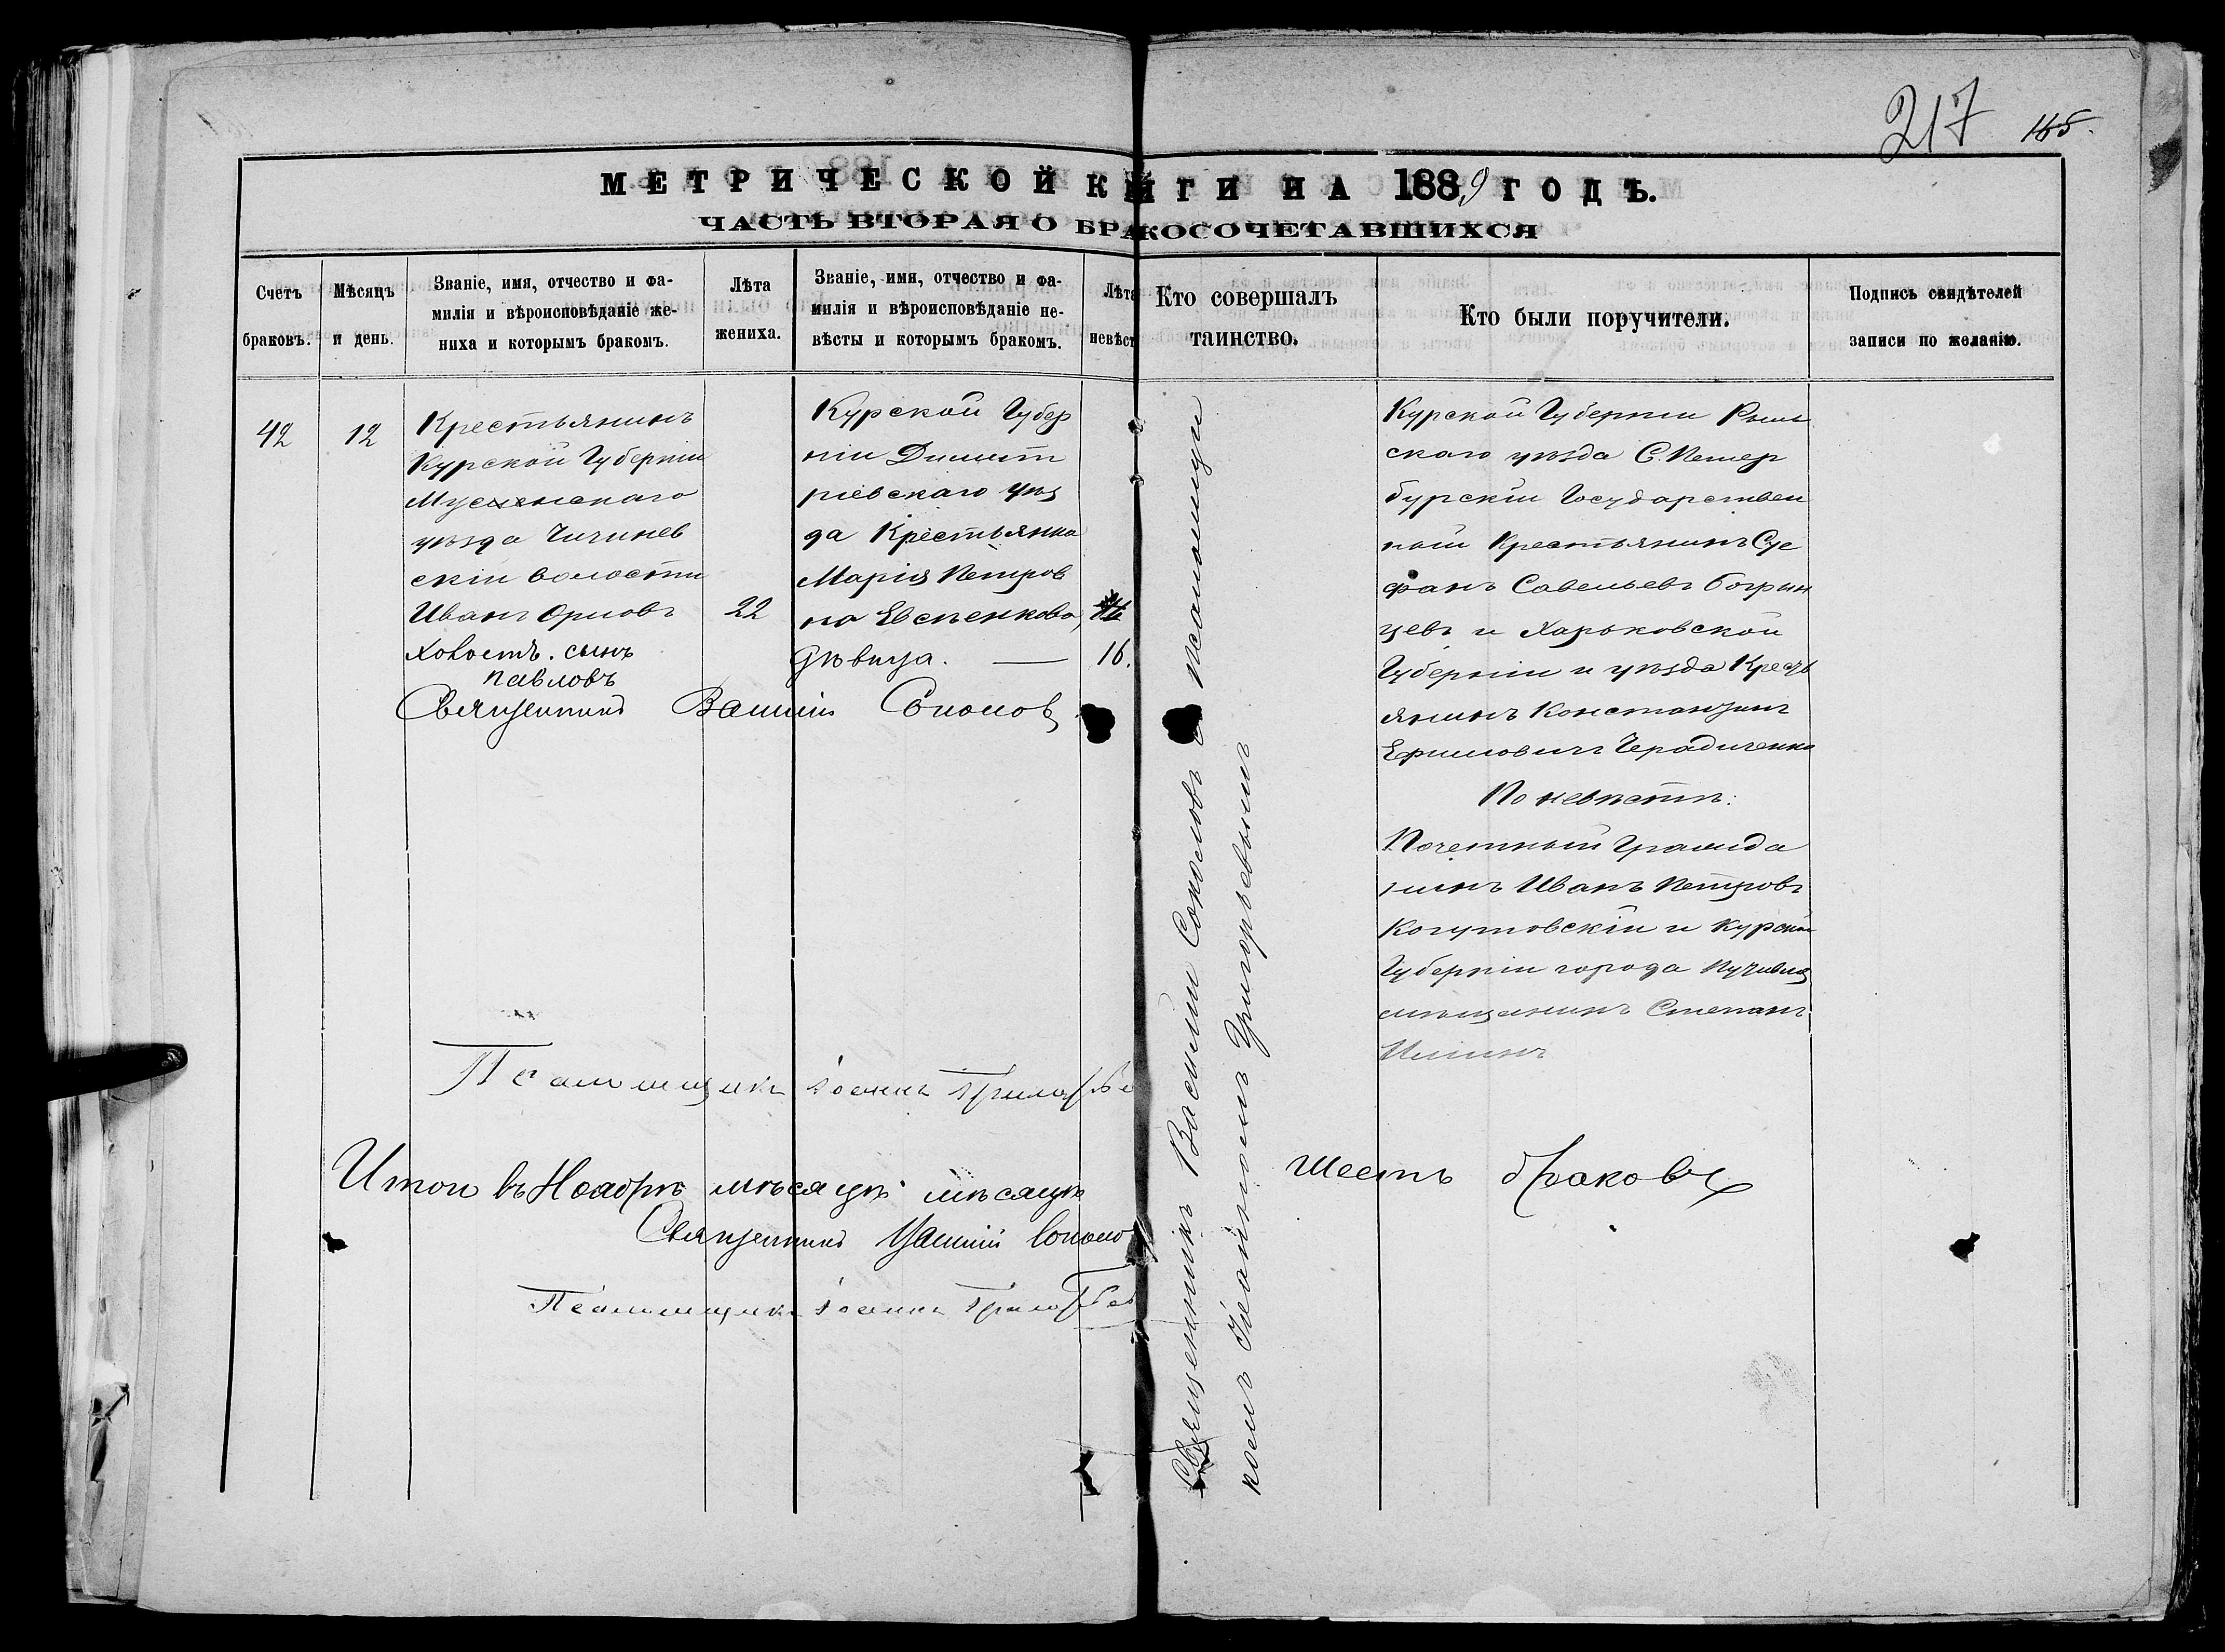 217 165.
МЕТРИЧЕСКОЙ КНИГИ НА 1889 ГОДЪ.
ЧАСТЬ ВТОРАЯ О БРАКОСОЧЕТАВШИХСЯ
Счетъ
браковъ.
Мѣсяцъ
и день.
Званіе, имя, отчество и фа-
милія и вѣроисповѣданіе же-
ниха и которымъ бракомъ.
Лѣта
жениха.
Званіе, имя, отчество и фа-
милія и вѣроисповѣданіе не-
вѣсты и которымъ бракомъ.
Лѣта
невѣст
Кто совершалъ
таинство.
Кто были поручители.
Подпись свидѣтелей
записи по желанію.
42
12
Крестьянинъ
Курской Губерніи
уѣзда
скій волости
Иванъ Орловъ
Ховостъ. сынъ
Павловъ
22
Курской Губер
ніи Димит
ріевскаго Уѣз
да Крестьянка
Марія Петров
на Евсѣенкова,
Дѣвица. —
16.
Священникъ Василій Соколовъ
Священникъ Василій Соколовъ съ псаломщи
комъ Іоанномъ Григорьевымъ
Курской Губерніи Рыль
скаго уѣзда С. Петер
бурскій Государствен
ный Крестьянинъ Сте
фанъ Савельевъ
цевъ и Харьковской
Губерніи и уѣзда Кресть
янинъ Константинъ
Ефимовичъ Черадиченко
По невѣстѣ:
Почетный Гражда
нинъ Иванъ Петровъ
Когутовскій и Курской
Губерніи города Путивля
мѣщанинъ Степанъ
Псаломщикъ Іоаннъ Григорьев
Итого въ Ноябрѣ мѣсяцѣ мѣсяцѣ шесть браковъ
Священникъ Василій Соколов
Псаломщикъ Іоаннъ Григорьев